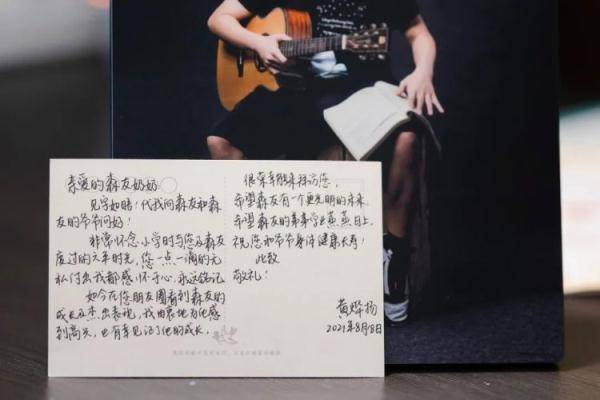 亲爱的森友奶奶
见字如晤！代我问森友和森
友的爷爷问好！
非常怀念小学时与您及森友
度过的六年时光，您一点一滴的无
私付出我都感怀于心，永远铭记
如今在您朋友圈看到森友的
成长及杰出表现，我由衷地为他感
到高兴，也有幸见证了他的成长。
很荣幸能来拜访您，
希望森友有一个更光明的未来，
希望森友的事事学业蒸蒸日上，
祝您和爷爷身体健康长寿！
此致
敬礼！
黄烨扬
2021年8月8日